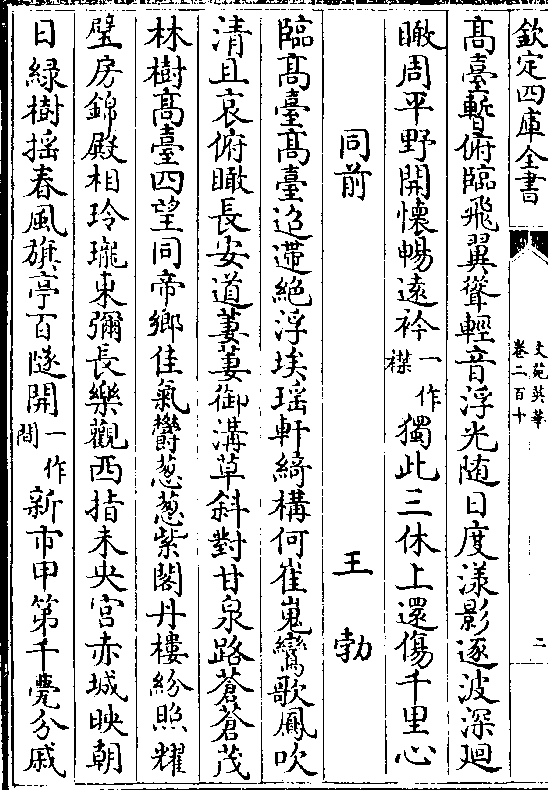 欽定四庫全書
文苑英華
卷二百十
二
髙臺暫俯臨飛翼聳輕音浮光随日度漾影逐波深廻
瞰周平野開懐暢逺衿一作襟獨此三休上還傷千里心
同前 王勃
臨髙臺髙臺迢遰絶浮埃瑶軒綺構何崔嵬鸞歌鳳吹
清且哀俯瞰長安道萋萋御溝草斜對甘泉路蒼蒼茂
林樹髙臺四望同帝鄉佳氣欝葱葱紫閣丹樓紛照耀
璧房錦殿相玲瓏東彌長樂觀西指未央宫赤城映朝
日緑樹揺春風旗亭百隧開一作間新市甲第千甍分戚